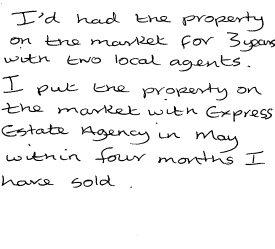 I'd had the property
on the market for 3 years
with two local agents.
I put the property on
the market with Express
Estate Agency in May
within four months I
have sold.